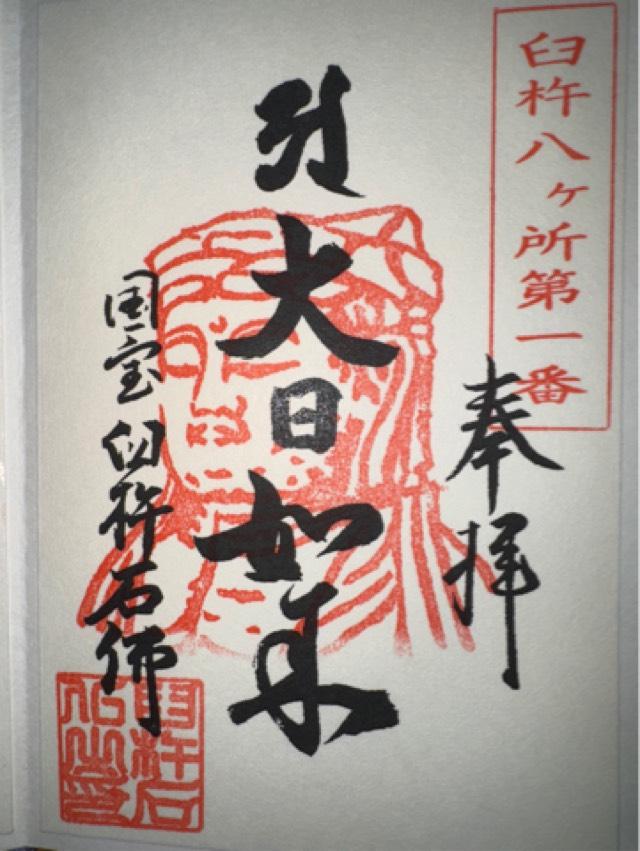 臼杵八ヶ所第一番
奉拝
大日如来
国宝 臼杵石佛
臼杵石
仏之印